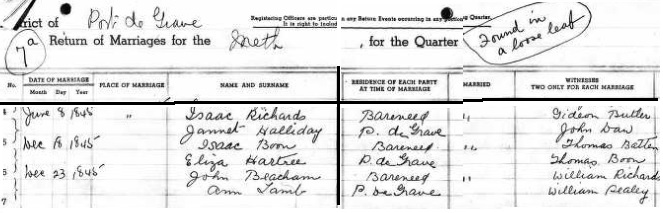 trict of Port de Grave
Registering Officers are particu n any Return Events occurring in any Quarter.
It is right to indel
7a Return of Marriages for the Meth , for the Quarter Found in a loose leaf
No. DATE OF MARRIAGE PLACE OF MARRIAGE NAME AND SURNAME RESIDENCE OF EACH PARTY AT TIME OF MARRIAGE MARRIED WITNESSES TWO ONLY FOR EACH MARRIAGE
Month Day Year
June 8 1845 " Isaac Richards Bareneed " Gideon Butler
Jannet Halliday P. de Grave John Daw
5 Dec 18 1845 Isaac Boon Bareneed " Thomas Batten
Eliza Hartree P. de Grave Thomas Boon
Dec 23 1845 John Beacham Bareneed " William Richards
Ann Lamb P. de Grave William Sealey
7